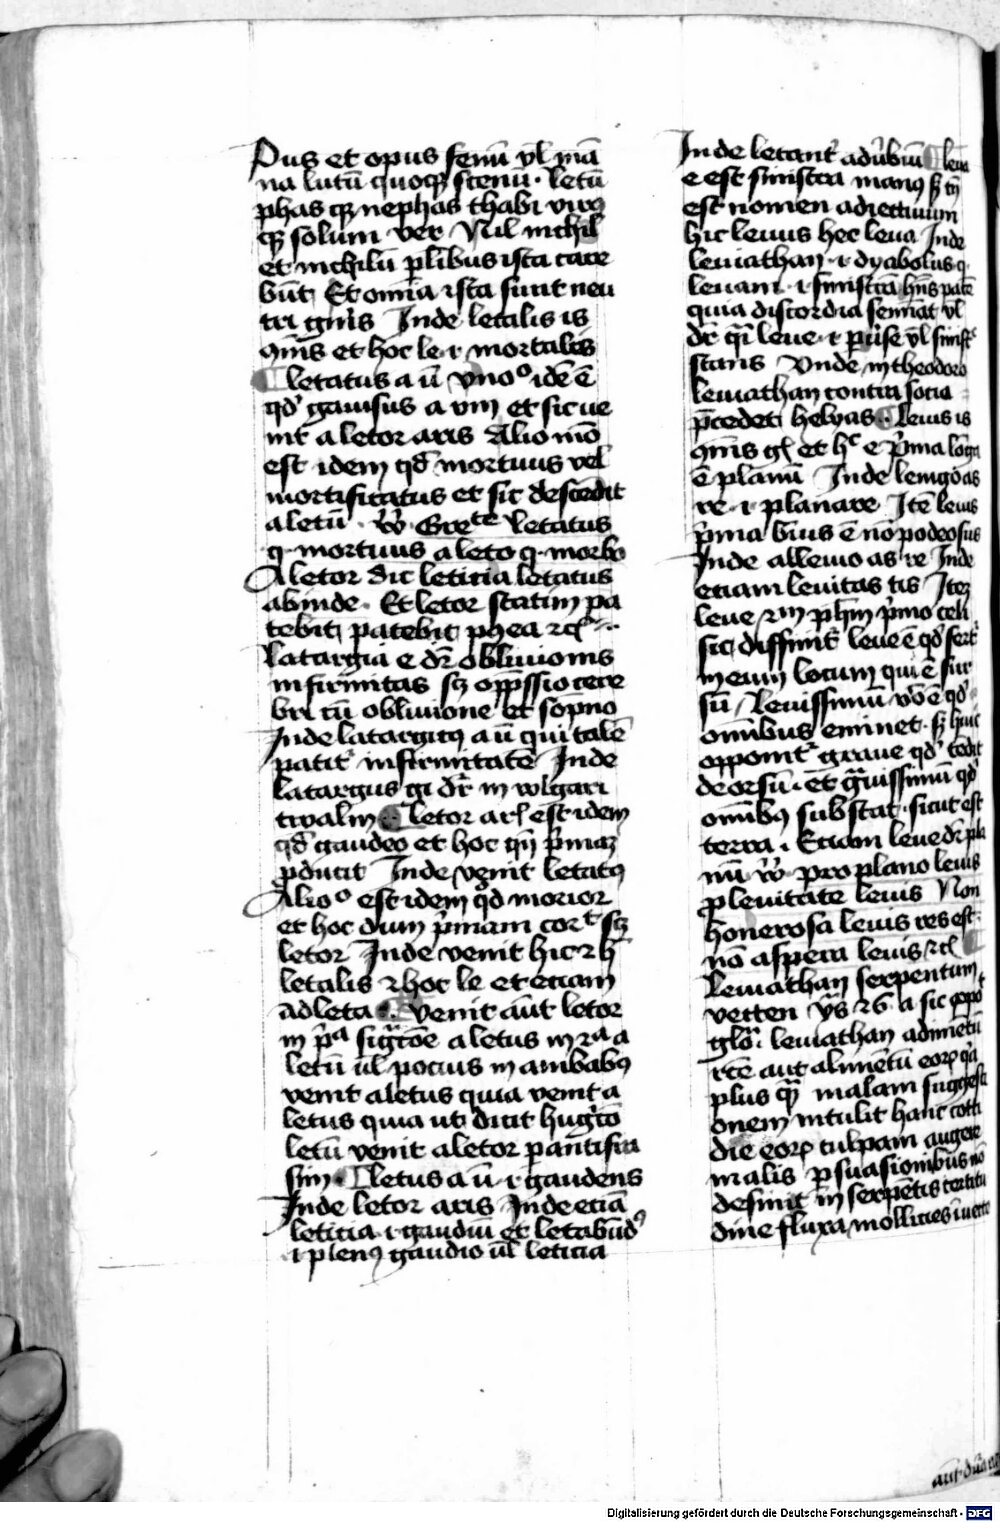 Pus et opus fenū vl̄ mā
na lutū quoqꝫ scenū · letū
phas qꝫ nephas thabi virꝰ
qꝫ solum ver Nil nichil
et nichilū pl̄ibus ista care
būt Et om̄ia ista sunt neu
tri gn̄is Inde letalis is
om̄is et hoc le ·i· mortalis
letatus a ū vnoº idē ē
qd̓ gauisus a vm et sic ue
nit a letor aris Alio mō
est idem qd̓ mortuus vel
mortificatus et sic descēdit
a letū · letatus
q· mortuus a leto q· morbo
A letor dic leticia letatus
abinde · Et letor statim pa
tebit patebit phea ⁊cͭ
Latargia e dr̄ obliuionis
infirmitas sꝫ opp̄ssio cere
bri cū obliuione et sopno
Inde latargicꝰ a ū qui talē
patit᷑ infirmitatē Inde
latargus gi dr̄ in wlgari
twalm letor arͭ est idem
qd̓ gaudeo et hoc qn̄ p̄maꝫ
ꝓducit Inde venit letatꝰ
Alioº est idem qd̓ morior
et hoc dum p̄mam corͭ sꝫ
letor Inde venit hic ⁊ h̄
letalis ⁊ hoc le et etiam
adleta venit aūt letor
in p̄ᵃ sigͣtōe a letus in 2ᵃ a
letū ul̄ pocius in ambabꝰ
venit a letus quia venit a
letus quia uti dicit hugͥtō
letū venit a letor p antifra
sim letus a ū ·i· gaudens
Inde letor aris Inde etiā
leticia ·i· gaudiū et letabūdꝰ
·i· plenꝰ gaudio ul̄ leticia
Inde letant᷑ adūbiū leua
e est sinistra manꝰ sꝫ tn̄
est nomen adiectiuum
hic leuus hec leua Inde
leuiathan ·i· dyabolus q·
leuam ·i· sinistrā hn̄s pātē
quia discordia semīat vl̄
dr̄ qͥ leue ·i· p̄use vl̄ sinistͤ
stans Vnde in theodoro
leuiathan contra socia
p̄cedet helyas · Leuis is
om̄is gͭ et hͨ e p̄ma lōga
ē planū Inde leuigo as
re ·i· planare Itē leuis
p̄ma bͥuis ē nō podeosus
Inde alleuio as re Inde
etiam leuitas tis Iteꝫ
leue 2m ph̄m p̄mo celi
sic diffinit᷑ leue ē qd̓ fert᷑
in eum locum qui ē sur
sū Leuissimū vō ē qd̓
omībus eminet · sꝫ huic
opponit᷑ graue qd̓ tedit
deorsū · et gͣuissimū qd̓
omībꝰ substat · sicut est
terra · Etiam leue dr̄ pla
nū pro plano leuis
ꝓ leuitate leuis Non
honerosa leuis res est·
nō aspera leuis ⁊cͭ
Leuiathan serpentum
vecten ys 26 a sic exposͭ
glō leuiathan adinuētū
plus qͣ malam suggesti
onem intulit hanc cotti
die eoꝝ culpam augere
malis ꝑsuasionibus nō
desinit in serpētis certitu
dine fluxa mollicies